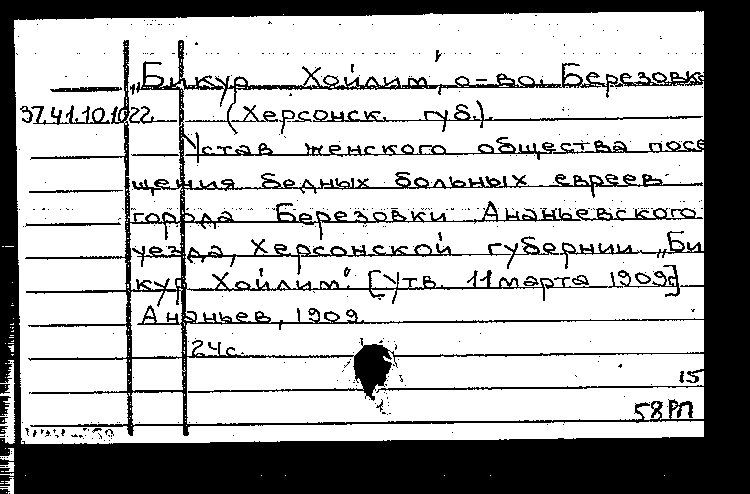 „Бикур Хойлим", о-во. Березовк
37.41.10.1022. (Херсонск. губ.).
Устав женского общества посе
щения бедных больных евреев
города Березовки Ананьевского
уезда, Херсонской губернии „Би
кур Хойлим". [Утв. 11 марта 1909г.]
Ананьев, 1909.
24с.
15
58РП